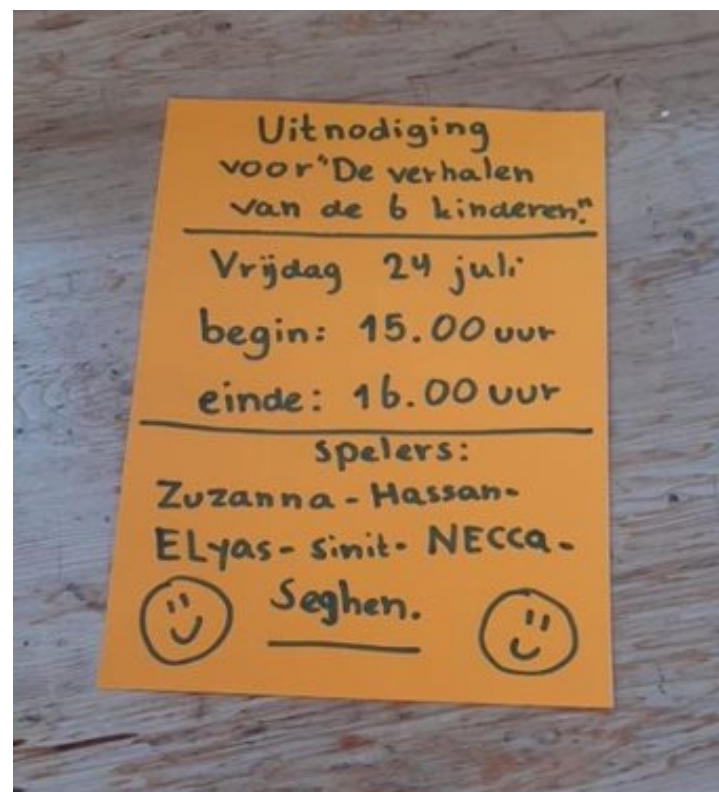 Uitnodiging
voor "De verhalen
van de 6 kinderen."
Vrijdag 24 juli
begin: 15.00 uur
einde: 16.00 uur
spelers:
Zuzanna - Hassan -
ELyas - sinit - NECCa -
Seghen.